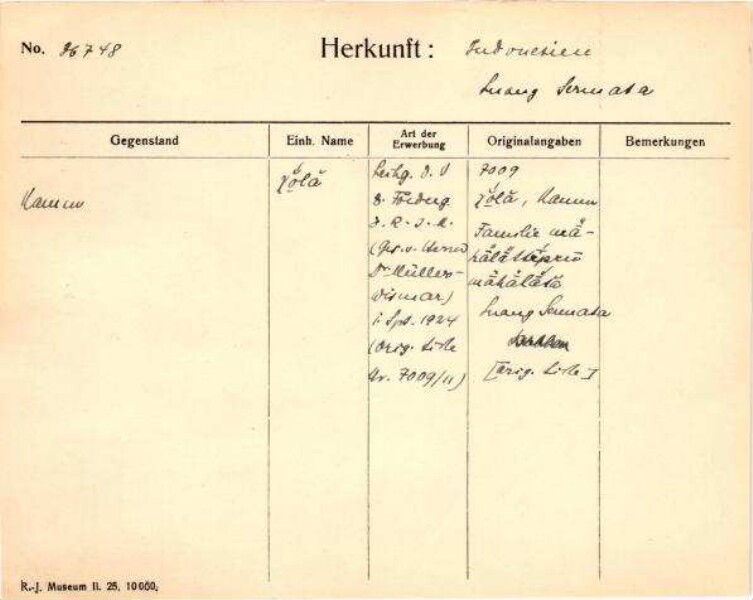 No. 26748 Herkunft: Indonesien
Luang Sermata
Gegenstand Einh. Name Art der Erwerbung Originalangaben Bemerkungen
Kamm
Leihg. d. V
z. Förderg
d. R-J-M.
(Ges. v. Herrn
Dr Müller-
Wismar)
1. Spt. 1924
(Orig. Liste
Nr. 7009/II)
7009
Kamm
Familie
Luang Sermata
[Orig. Liste]
R.-J. Museum II. 25, 10000,